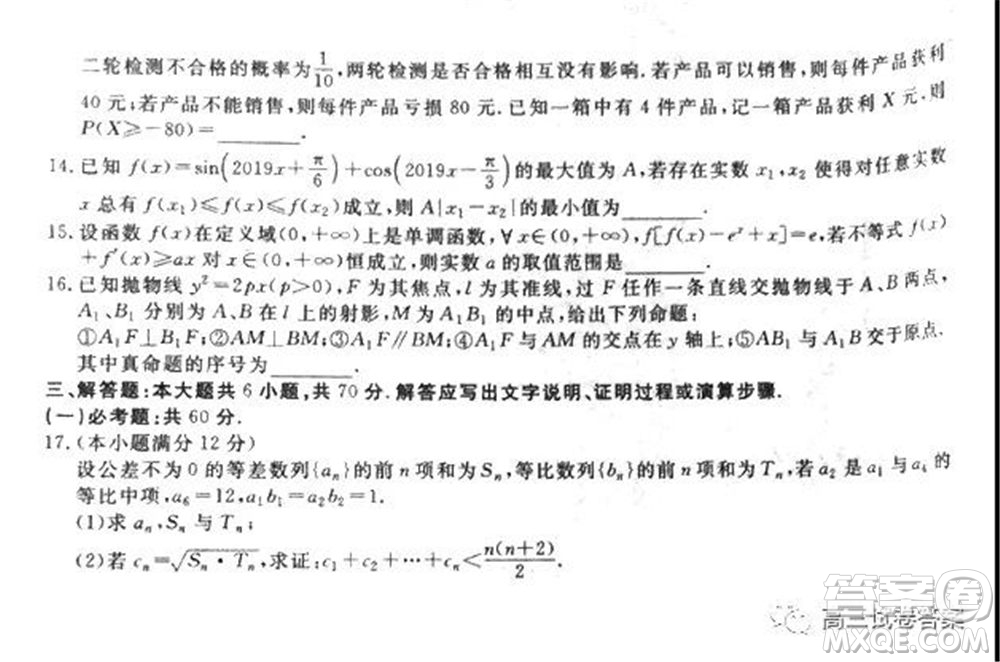 二轮检测不合格的概率为1/10,两轮检测是否合格相互没有影响.若产品可以销售,则每件产品获利
40元;若产品不能销售,则每件产品亏损80元.已知一箱中有4件产品,记一箱产品获利X元.则
P(X≥-80)=________.
14.已知f(x)=sin(2019x+π/6)+cos(2019x-π/3)的最大值为A,若存在实数x₁,x₂使得对任意实数
x总有f(x₁)≤f(x)≤f(x₂)成立,则A|x₁-x₂|的最小值为________.
15.设函数f(x)在定义域(0,+∞)上是单调函数,∀x∈(0,+∞),f[f(x)-eˣ+x]=e,若不等式f(x)
+f'(x)≥ax对x∈(0,+∞)恒成立,则实数a的取值范围是________.
16.已知抛物线y²=2px(p>0),F为其焦点,l为其准线,过F任作一条直线交抛物线于A、B两点,
A₁、B₁分别为A、B在l上的射影,M为A₁B₁的中点,给出下列命题:
①A₁F⊥B₁F;②AM⊥BM;③A₁F∥BM;④A₁F与AM的交点在y轴上;⑤AB₁与A₁B交于原点.
其中真命题的序号为________.
三、解答题:本大题共6小题,共70分.解答应写出文字说明、证明过程或演算步骤.
(一)必考题:共60分.
17.(本小题满分12分)
设公差不为0的等差数列{aₙ}的前n项和为Sₙ,等比数列{bₙ}的前n项和为Tₙ,若a₂是a₁与a₄的
等比中项,a₆=12,a₁b₁=a₂b₂=1.
(1)求aₙ,Sₙ与Tₙ;
(2)若cₙ=√(Sₙ·Tₙ),求证:c₁+c₂+…+cₙ<n(n+2)/2.
答案圈
高三试卷答案
MXQE.COM